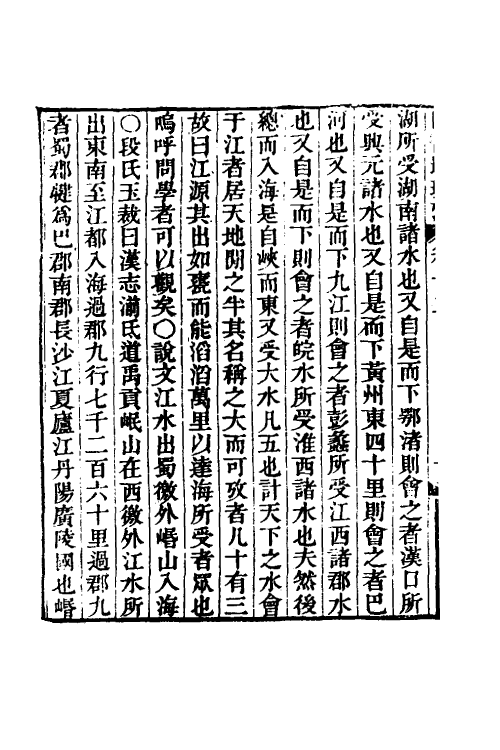 湖所受湖南諸水也又自是而下鄂渚則會之者漢口所
受興元諸水也又自是而下黃州東四十里則會之者巴
河也又自是而下九江則會之者彭蠡所受江西諸郡水
也又自是而下則會之者皖水所受淮西諸水也夫然後
總而入海是自峽而東又受大水凡五也計天下之水會
于江者居天地閒之半其名稱之大而可攷者凡十有三
故曰江源其出如甕而能滔滔萬里以達海所受者眾也
嗚呼問學者可以觀矣〇說文江水出蜀徼外崏山入海
〇段氏玉裁曰漢志湔氐道禹貢岷山在西徼外江水所
出東南至江都入海過郡九行七千二百六十里過郡九
者蜀郡犍爲巴郡南郡長沙江夏廬江丹陽廣陵國也崏